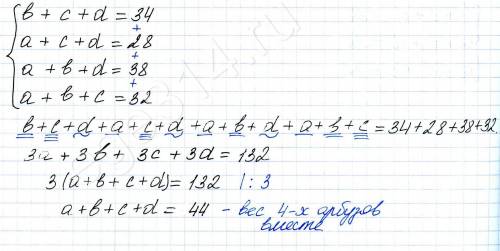 b + c + d = 34
a + c + d = 28
a + b + d = 38
a + b + c = 32
b+c+d+a+c+d+a+b+d+a+b+c = 34+28+38+32.
3a + 3b + 3c + 3d = 132
3(a+b+c+d) = 132 | : 3
a+b+c+d = 44 - вес 4-х арбузов
вместе